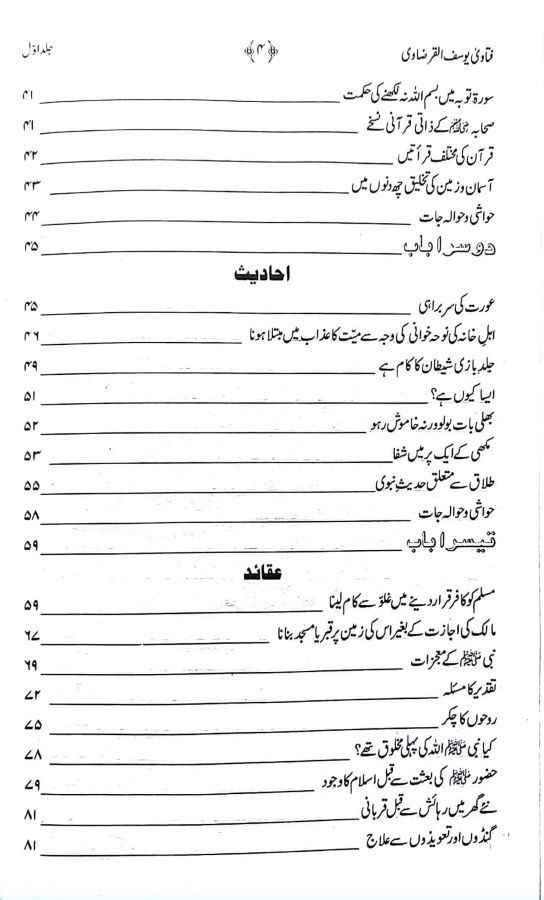 فتاویٰ یوسف القرضاوی ﴿۴﴾ جلد اوّل
سورۃ توبہ میں بسم اللہ نہ لکھنے کی حکمت ۴۱
صحابہ ﷢ کے ذاتی قرآنی نسخے ۴۱
قرآن کی مختلف قرأتیں ۴۲
آسمان و زمین کی تخلیق چھ دنوں میں ۴۳
حواشی و حوالہ جات ۴۴
دوسرا باب ۴۵
احادیث
عورت کی سربراہی ۴۵
اہلِ خانہ کی نوحہ خوانی کی وجہ سے میّت کا عذاب میں مبتلا ہونا ۴۶
جلد بازی شیطان کا کام ہے ۴۹
ایسا کیوں ہے؟ ۵۱
بھلی بات بولو ورنہ خاموش رہو ۵۲
مکھی کے ایک پر میں شفا ۵۳
طلاق سے متعلق حدیثِ نبوی ۵۵
حواشی و حوالہ جات ۵۸
تیسرا باب ۵۹
عقائد
مسلم کو کافر قرار دینے میں غلوّ سے کام لینا ۵۹
مالک کی اجازت کے بغیر اس کی زمین پر قبر یا مسجد بنانا ۶۷
نبی ﷺ کے معجزات ۶۹
تقدیر کا مسئلہ ۷۲
روحوں کا چکر ۷۵
کیا نبی ﷺ اللہ کی پہلی مخلوق تھے؟ ۷۸
حضور ﷺ کی بعثت سے قبل اسلام کا وجود ۷۹
نئے گھر میں رہائش سے قبل قربانی ۸۱
گنڈوں اور تعویذوں سے علاج ۸۱